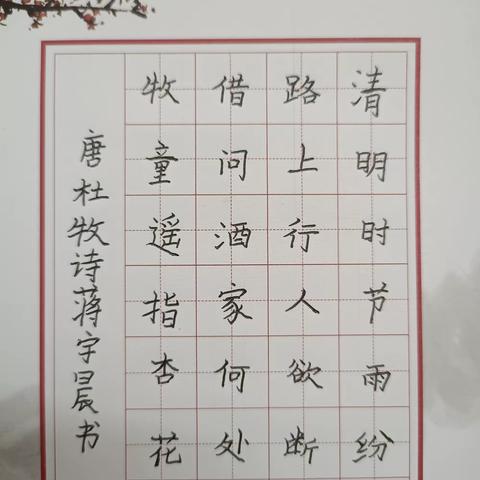 清明时节雨纷
路上行人欲断
借问酒家何处
牧童遥指杏花
唐杜牧诗蒋宇晨书